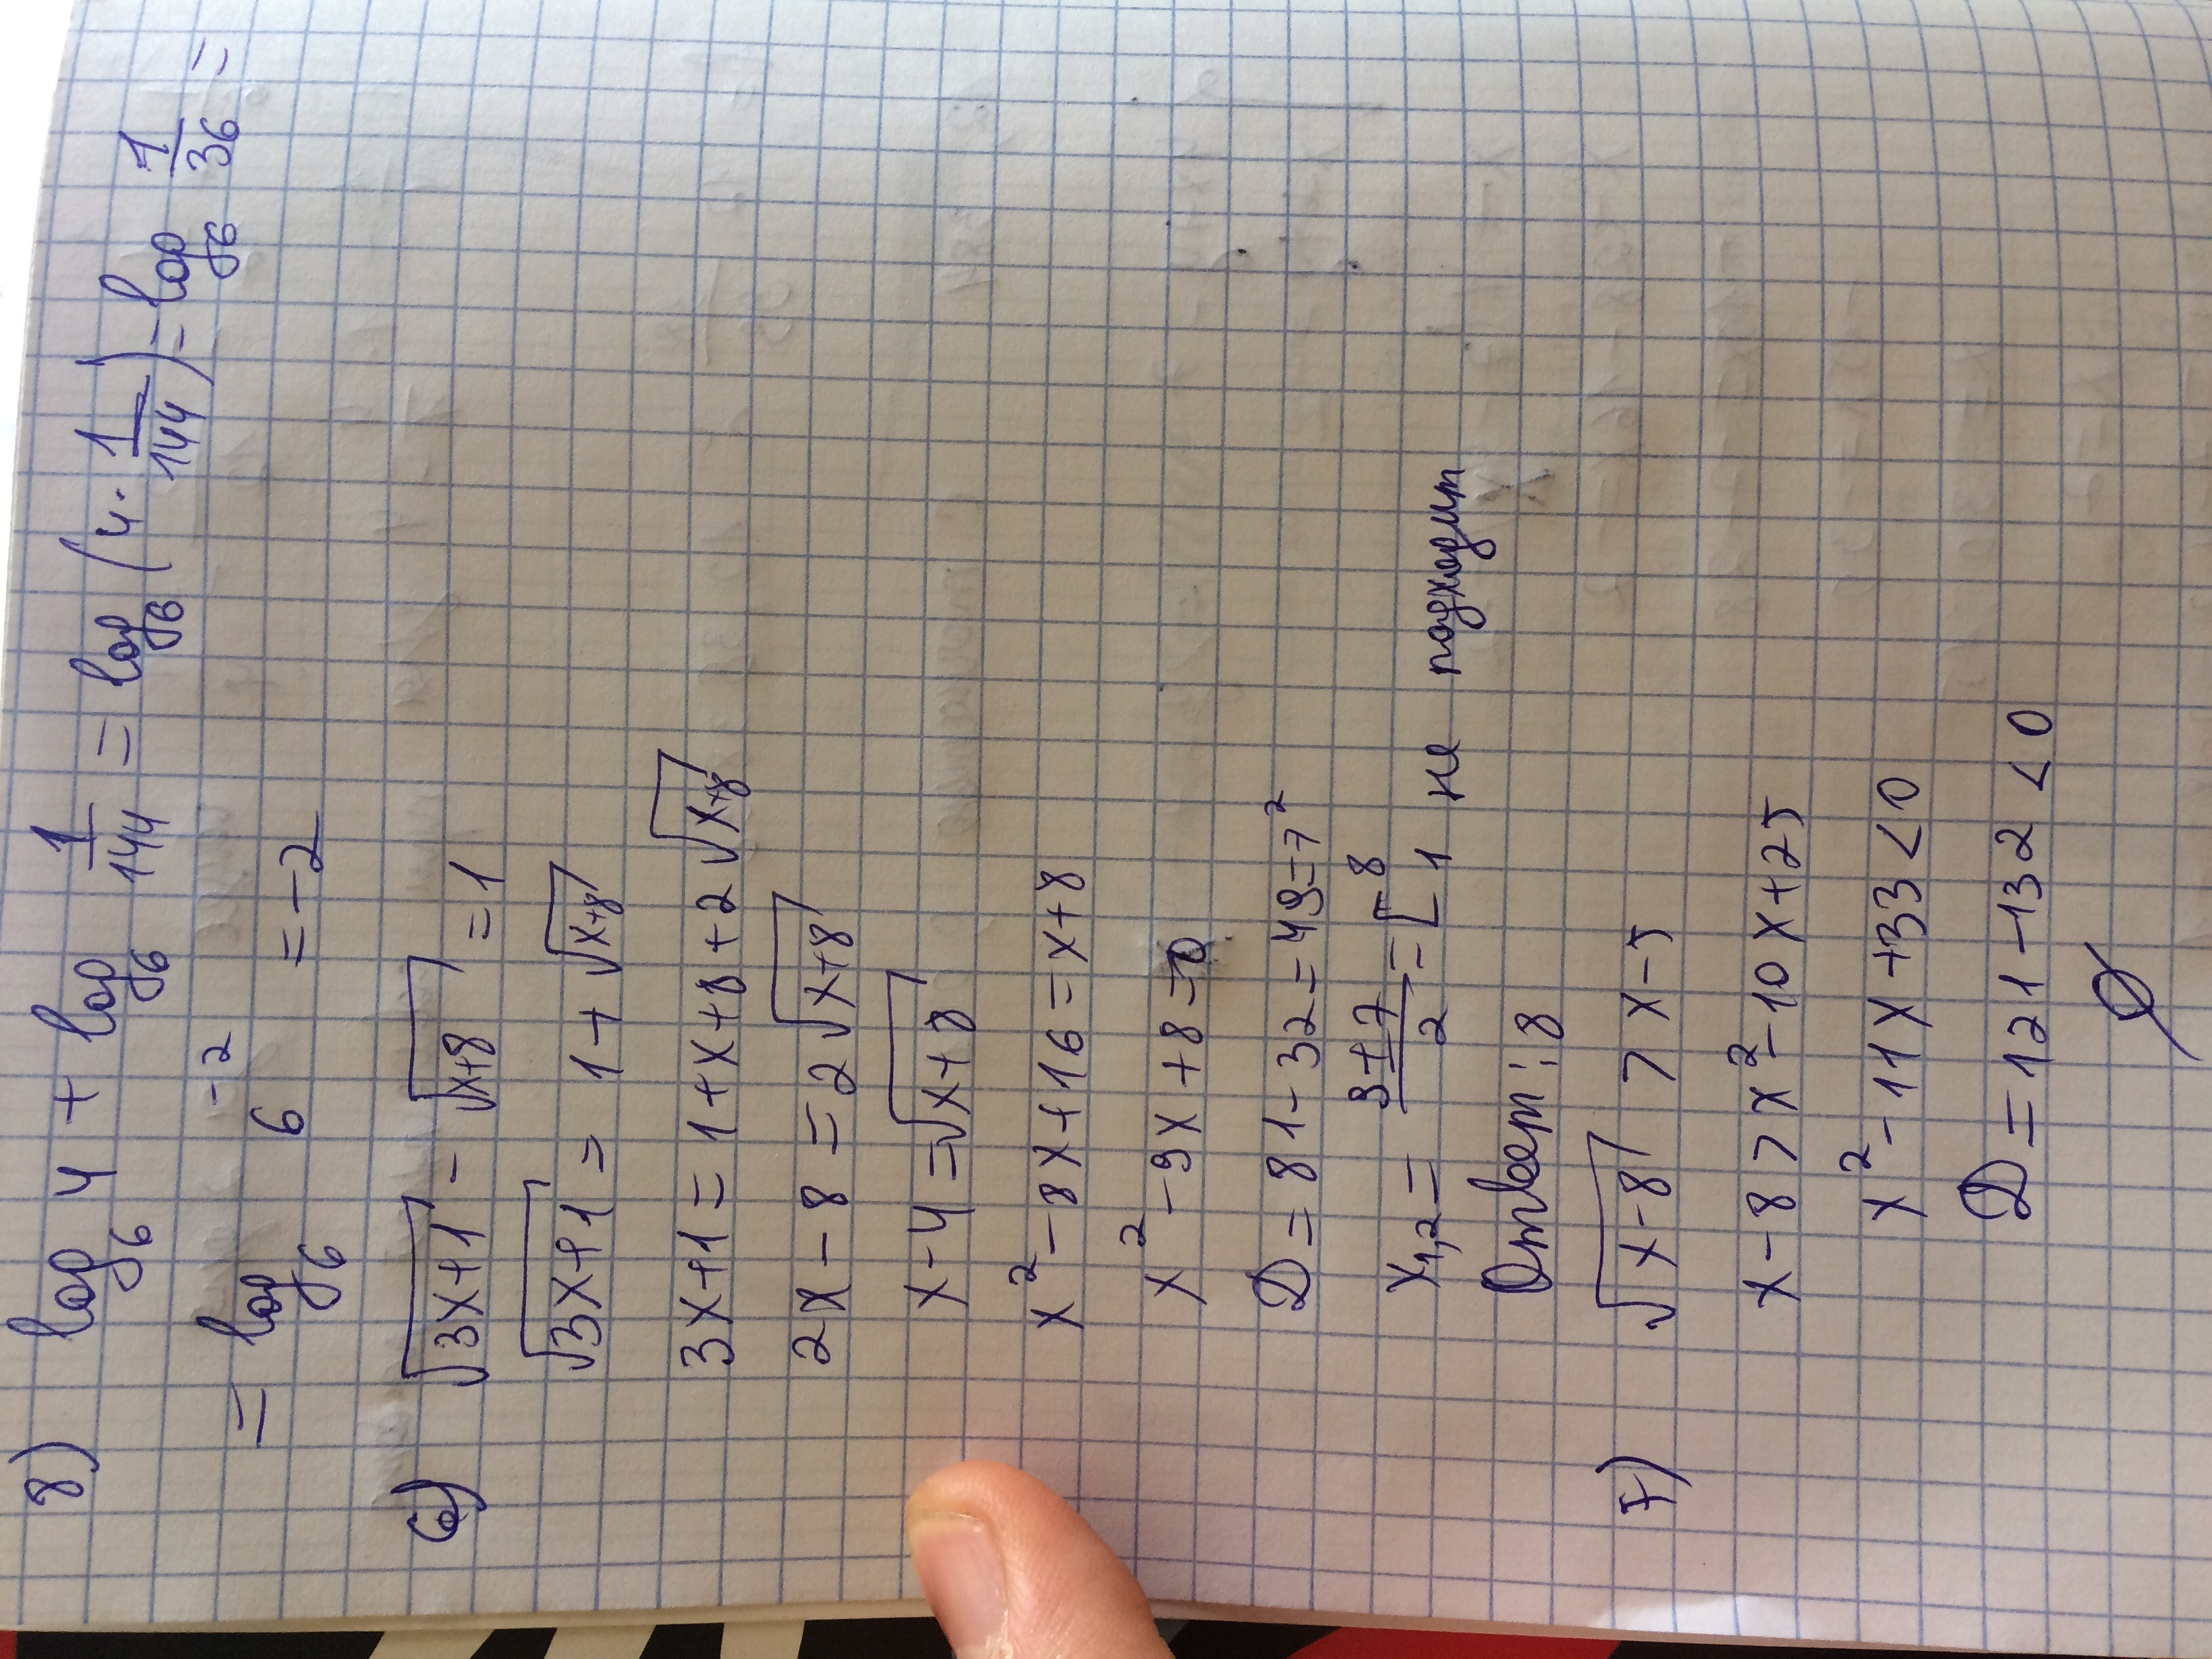 8) log₆ 4 + log₆ 1/144 = log₆ (4 · 1/144) = log₆ 1/36 =
= log₆ 6⁻² = -2
6) √(3x+1) - √(x+8) = 1
√(3x+1) = 1 + √(x+8)
3x+1 = 1+x+8+2√(x+8)
2x-8 = 2√(x+8)
x-4 = √(x+8)
x² - 8x+16 = x+8
x² - 9x+8 = 0
D = 81-32 = 49 = 7²
x₁,₂ = (9±7)/2 = [ 8
1 не подходит
Ответ: 8
7) √(x-8) > x-5
x-8 > x² - 10x+25
x² - 11x+33 < 0
D = 121 - 132 < 0
∅